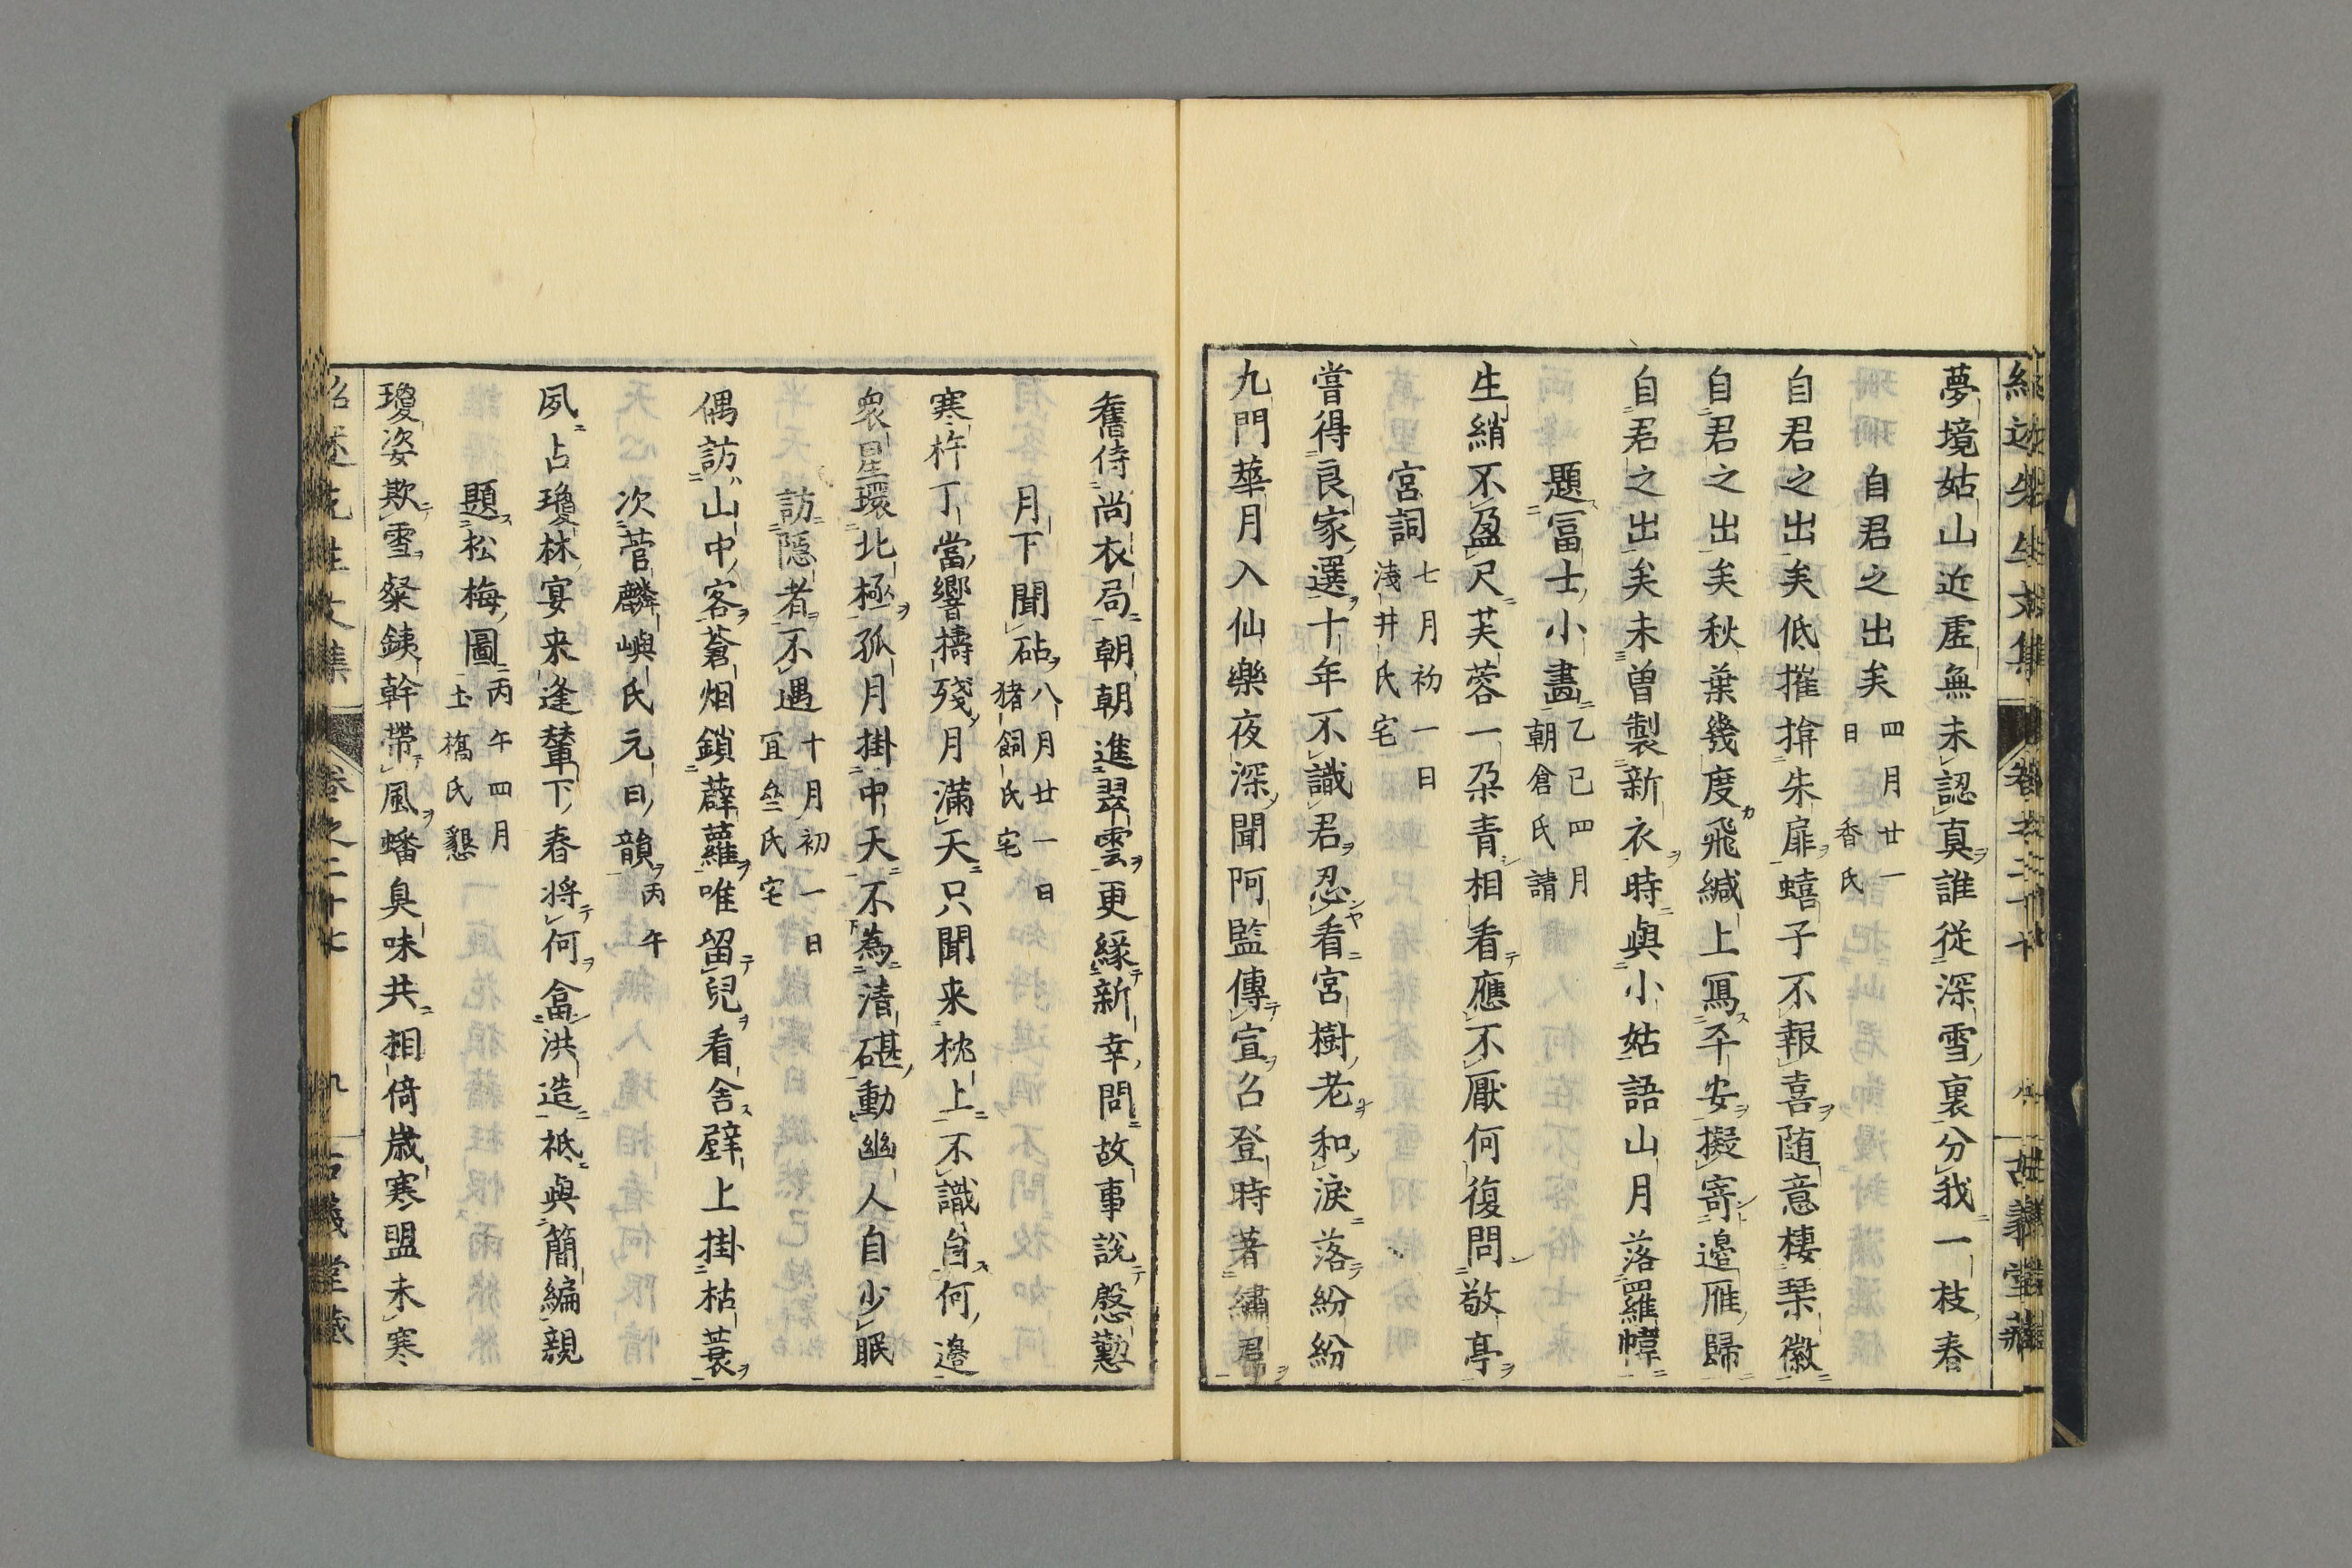 夢境姑山近虛無未認真誰從深雪裏分我一枝春
自君之出矣 四月廿一日香氏
自君之出矣低摧揜朱扉蟢子不報喜随意棲琹徽
自君之出矣秋葉幾度飛緘上寫平安擬寄邉雁歸
自君之出矣未曽製新衣時與小姑語山月落羅幃
題冨士小畫 乙巳四月朝倉氏請
生綃不盈尺芙蓉一朶青相看應不厭何復問敬亭
宮詞 七月初一日淺井氏宅
嘗得良家選十年不識君忍看宮樹老和淚落紛紛
九門華月入仙樂夜深聞阿監傳宣召登時著繡君
舊侍尚衣局朝朝進翠雲更緣新幸問故事說慇懃
月下聞砧 八月廿一日猪飼氏宅
寒杵丁當響擣殘月滿天只聞来枕上不識自何邉
衆星環北極孤月掛中天不為清碪動幽人自少眠
訪隱者不遇 十月初一日宜叅氏宅
偶訪山中客蒼烟鎖薜蘿唯留兒看舍壁上掛枯蓑
次菅麟嶼氏元日韻 丙午
夙占瓊林宴来逢輦下春将何答洪造祗與簡編親
題松梅圖 丙午四月土橋氏懇
瓊姿欺雪粲銕幹帶風蟠臭味共相倚歳寒盟未寒
卷之二十七
九